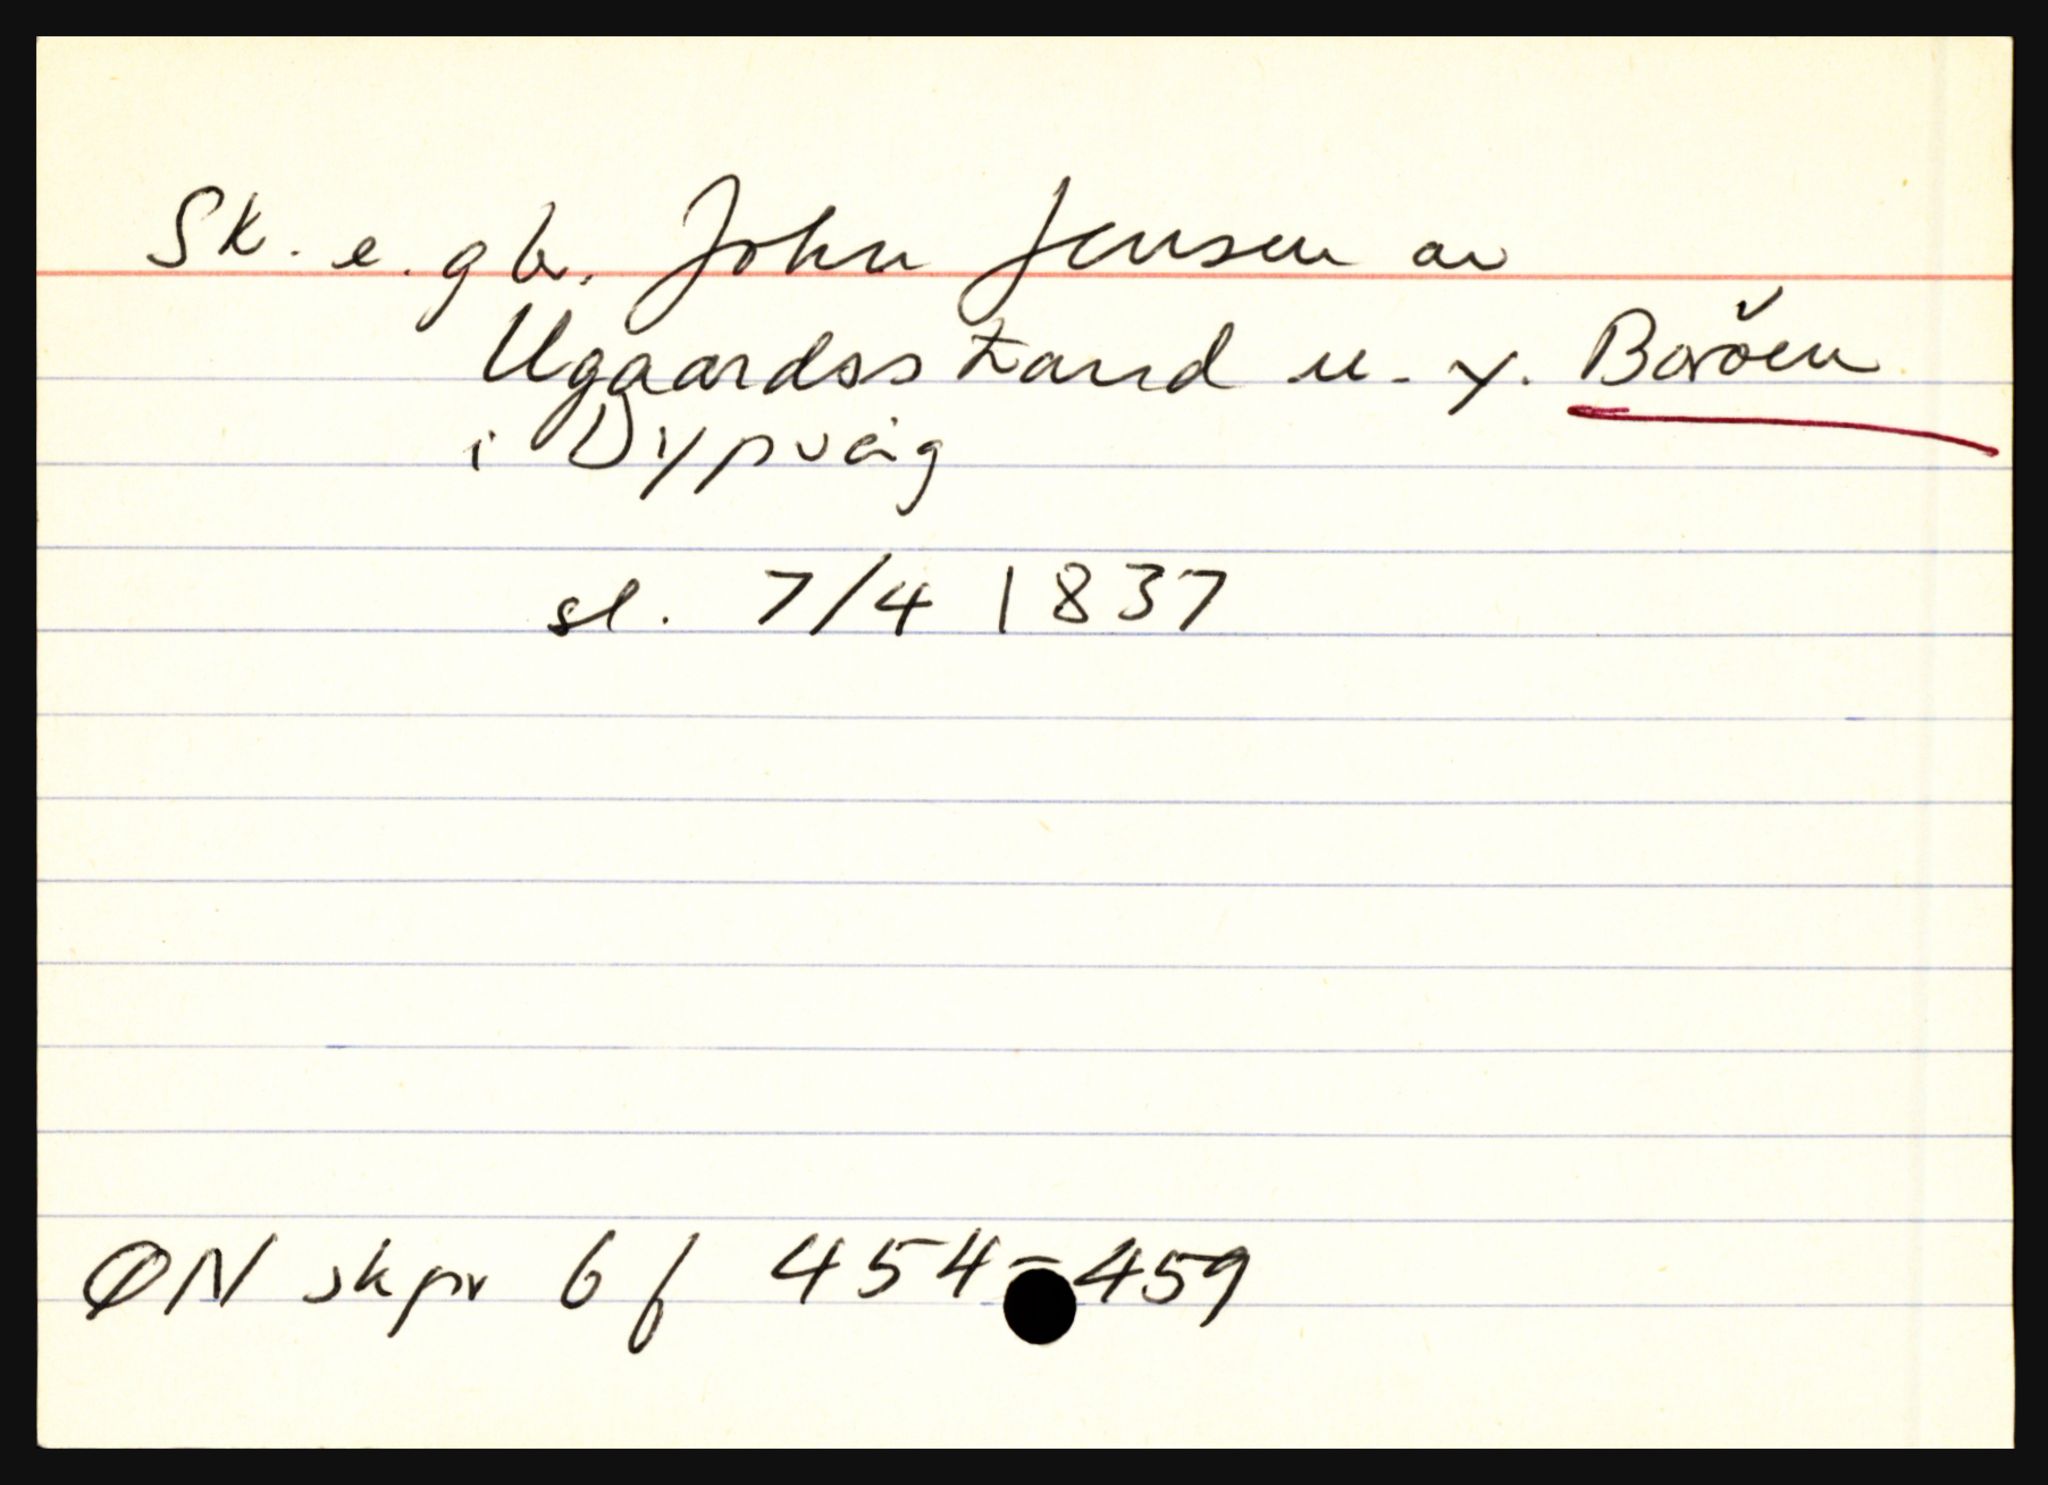 Sk. e. gb. John Jensen av
Ugaardsstrand u. y. Boröen
i Dypvaig
sl. 7/4 1837
ØN skpr 6 f 454-459